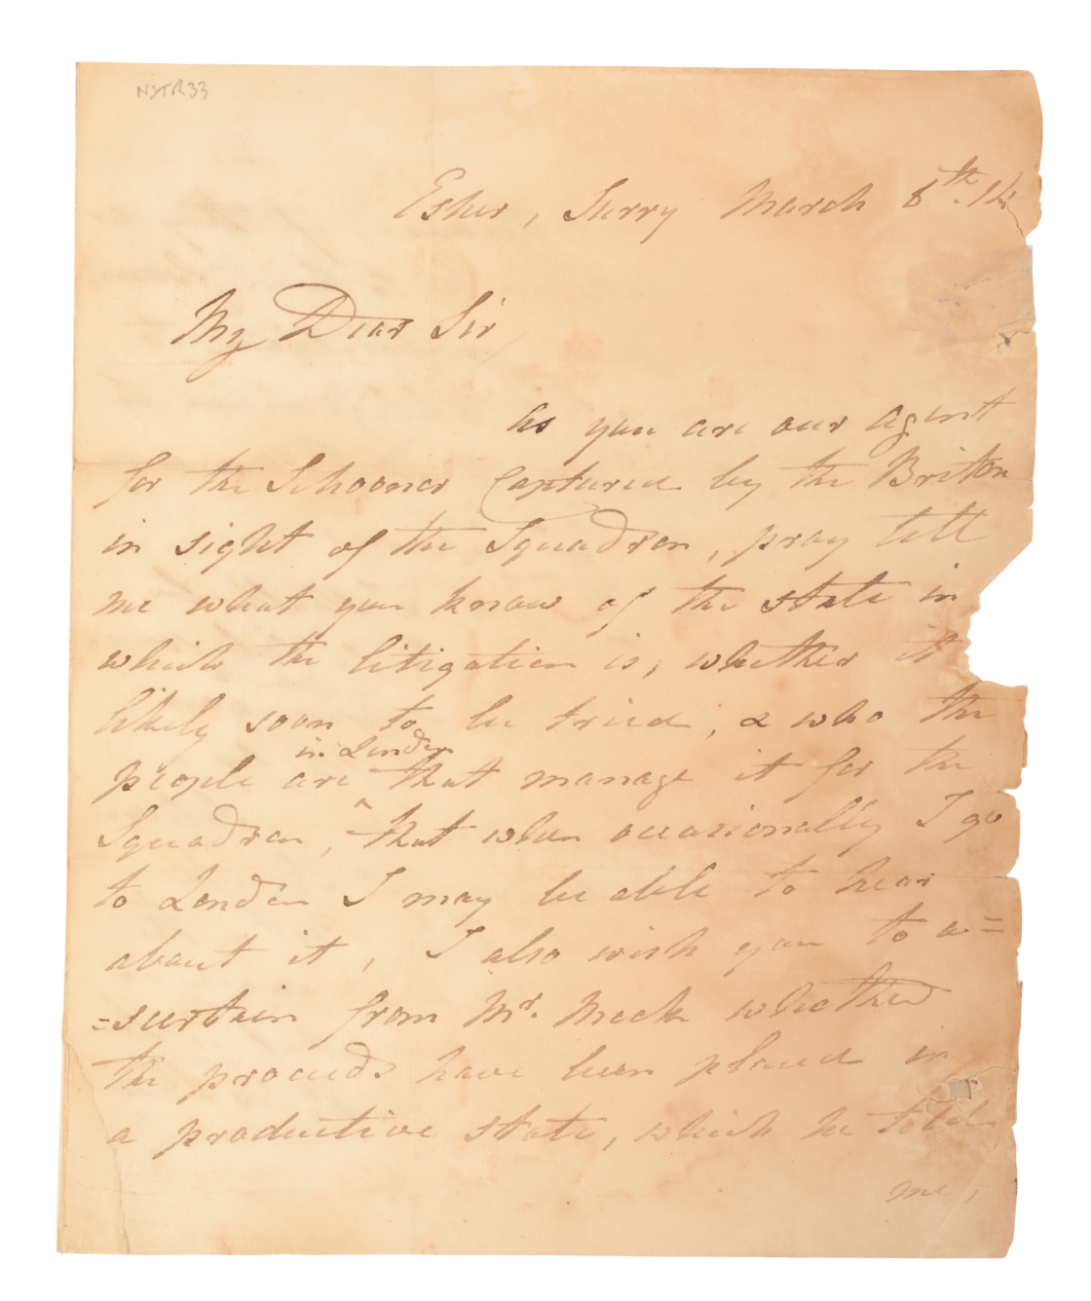 NSTR33
Esher, Surry March 8th. 14
My Dear Sir
As you are our agent
for the Schooner Captured by the Briton
in sight of the Squadron, pray tell
me what you know of the state in
which the litigation is, whether it
likely soon to be tried, & who the
in London
people are ^ that manage it for the
Squadron, that when occasionally I go
to London I may be able to hear
about it, I also wish you to a=
=scertain from Mr. Meek whether
the proceeds have been placed in
a productive state, which he told
me,